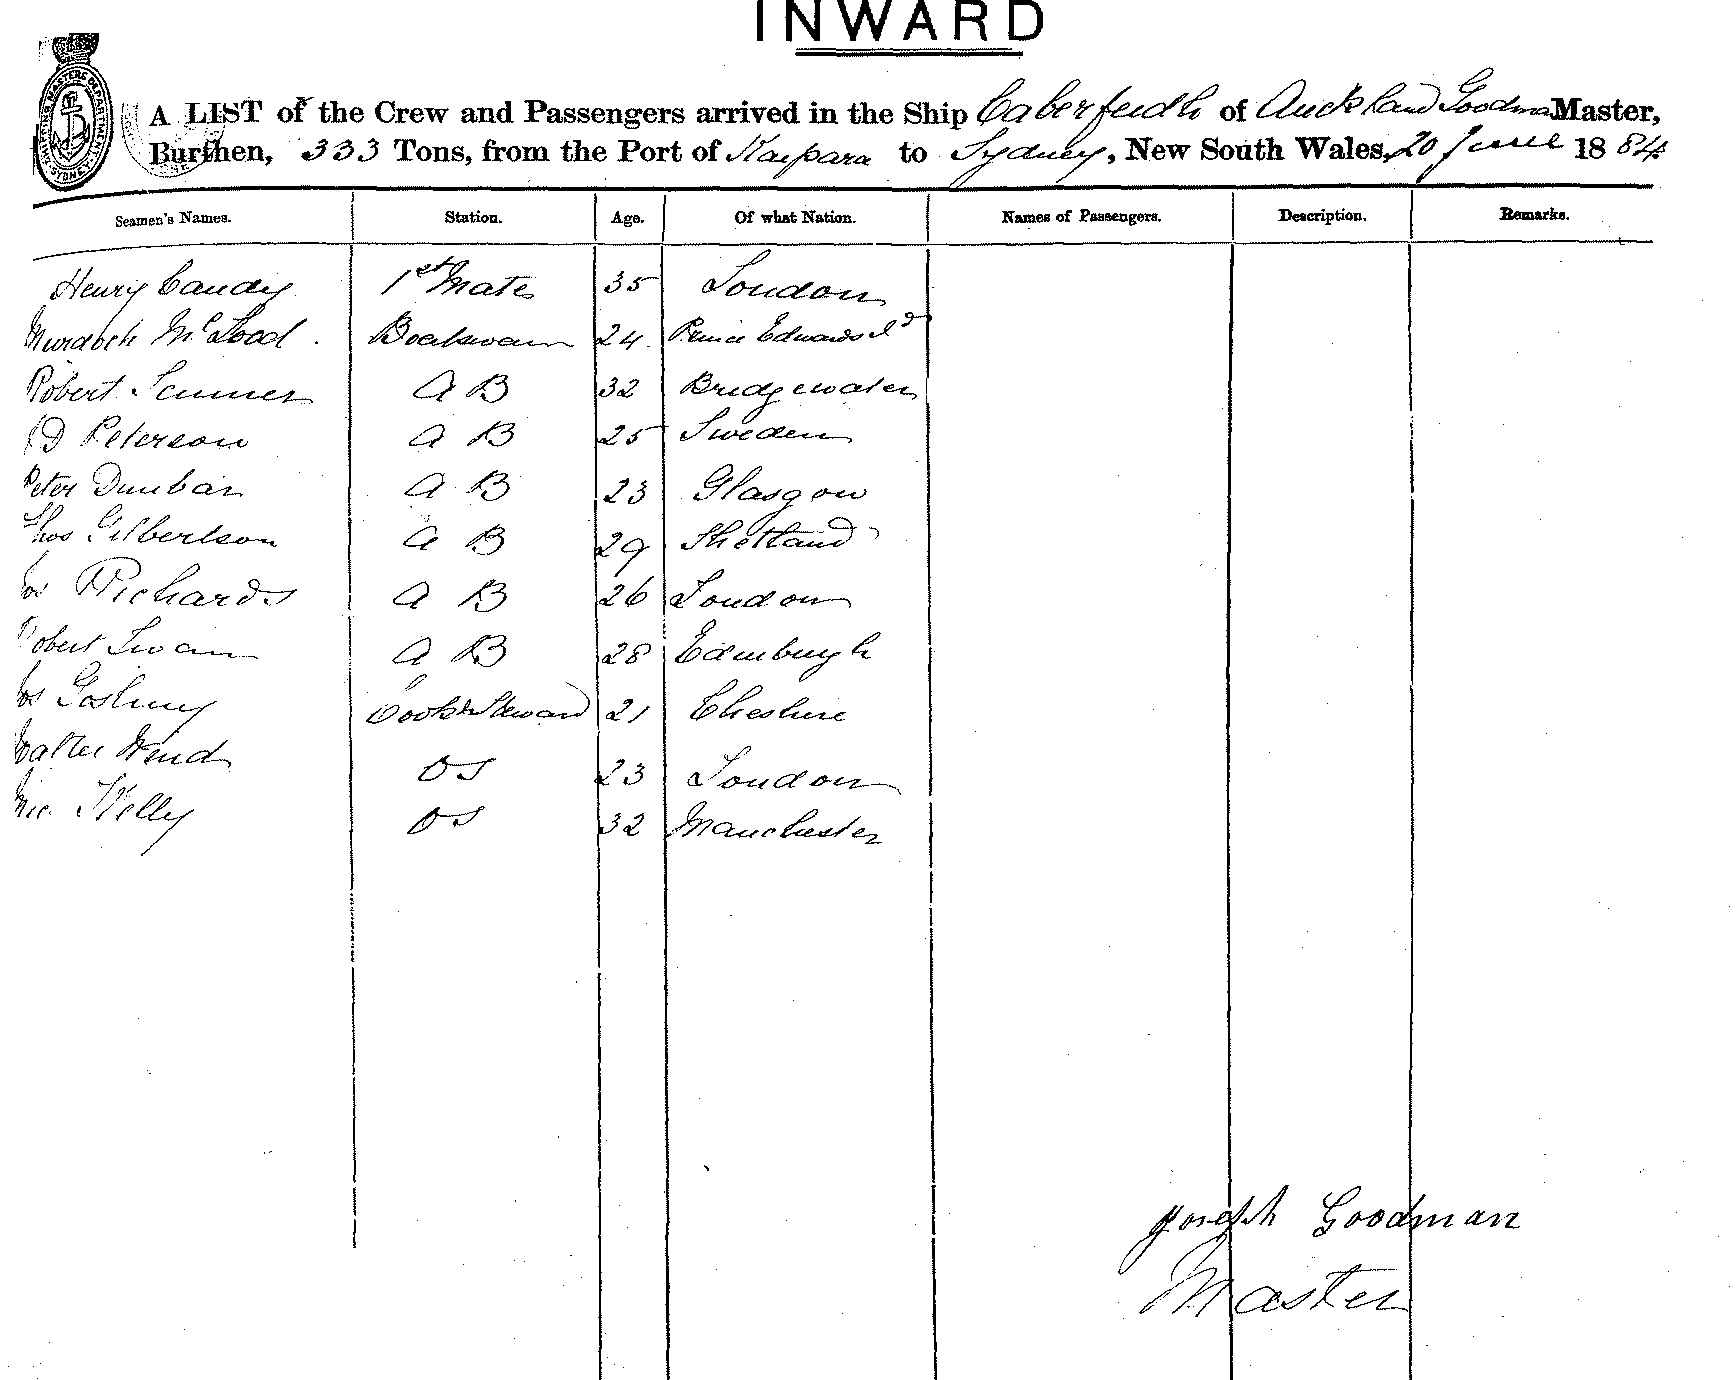 INWARD
A LIST of the Crew and Passengers arrived in the Ship Caberfeidh of Auckland Goodman Master,
Burthen, 333 Tons, from the Port of Kaipara to Sydney, New South Wales, 20 June 1884
Seamen's Names. Station. Age. Of what Nation. Names of Passengers. Description. Remarks.
Henry Candy 1st Mate 35 London
Murdoch McLeod Boatswain 24 Prince Edwards Id
Robert 32 A B Bridgewater
D Peterson A B 25 Sweden
Peter Dunbar A B 23 Glasgow
Thos Gilbertson A B 29 Shetland
Jos Richards A B 26 London
Robert Swan A B 28 Edinburgh
Jos Gosling Cook & Steward 21 Cheshire
Walter O S 23 London
Mic Kelly O S 32 Manchester
Joseph Goodman
Master